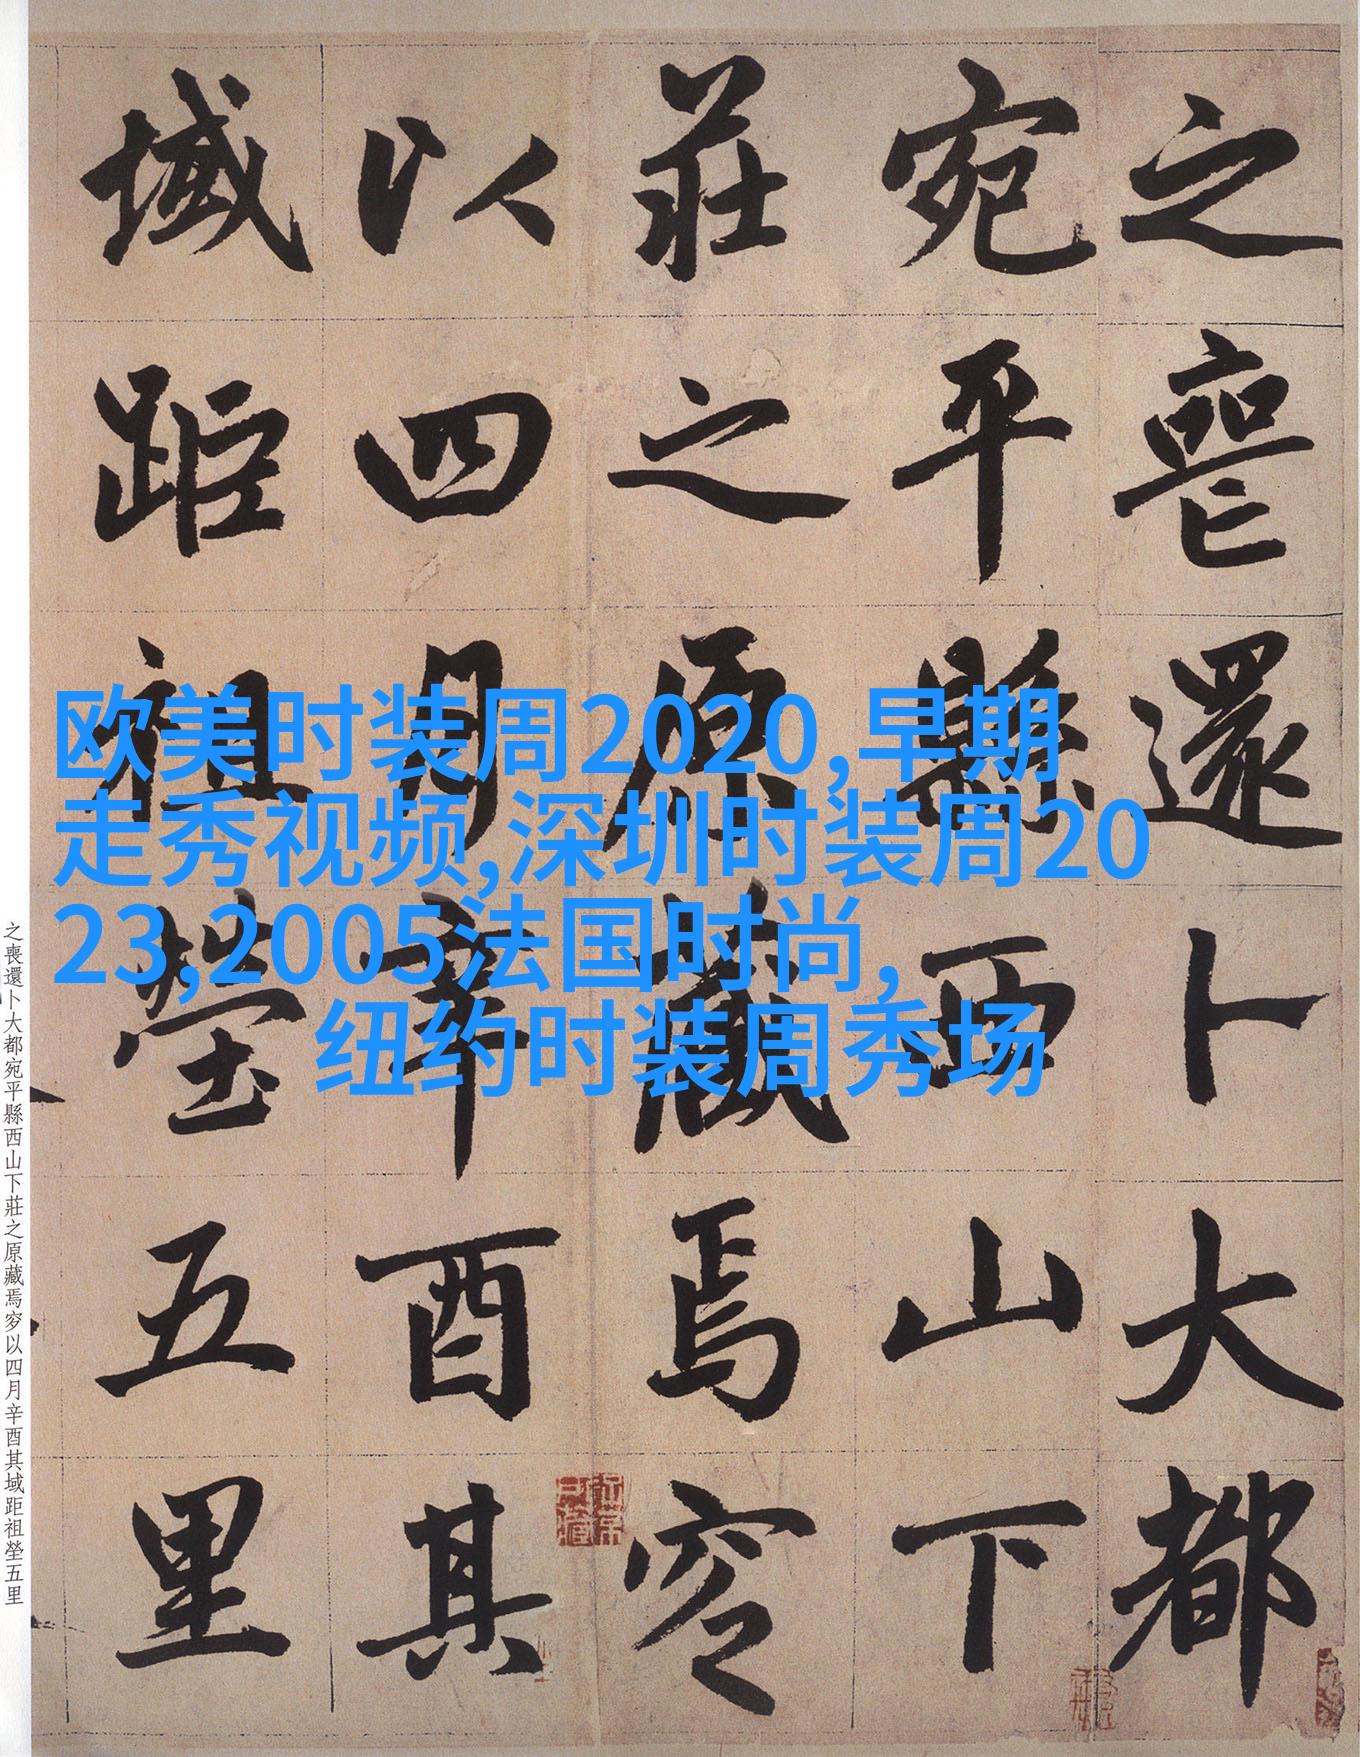 之喪還卜大都
宛平縣西山下
莊之原藏焉穸
以四月辛酉其
域距祖塋五里
之喪還卜大都宛平縣西山下莊之原藏焉穸以四月辛酉其域距祖塋五里
欧美时装周2020,早期
走秀视频,深圳时装周20
23,2005法国时尚,
纽约时装周秀场